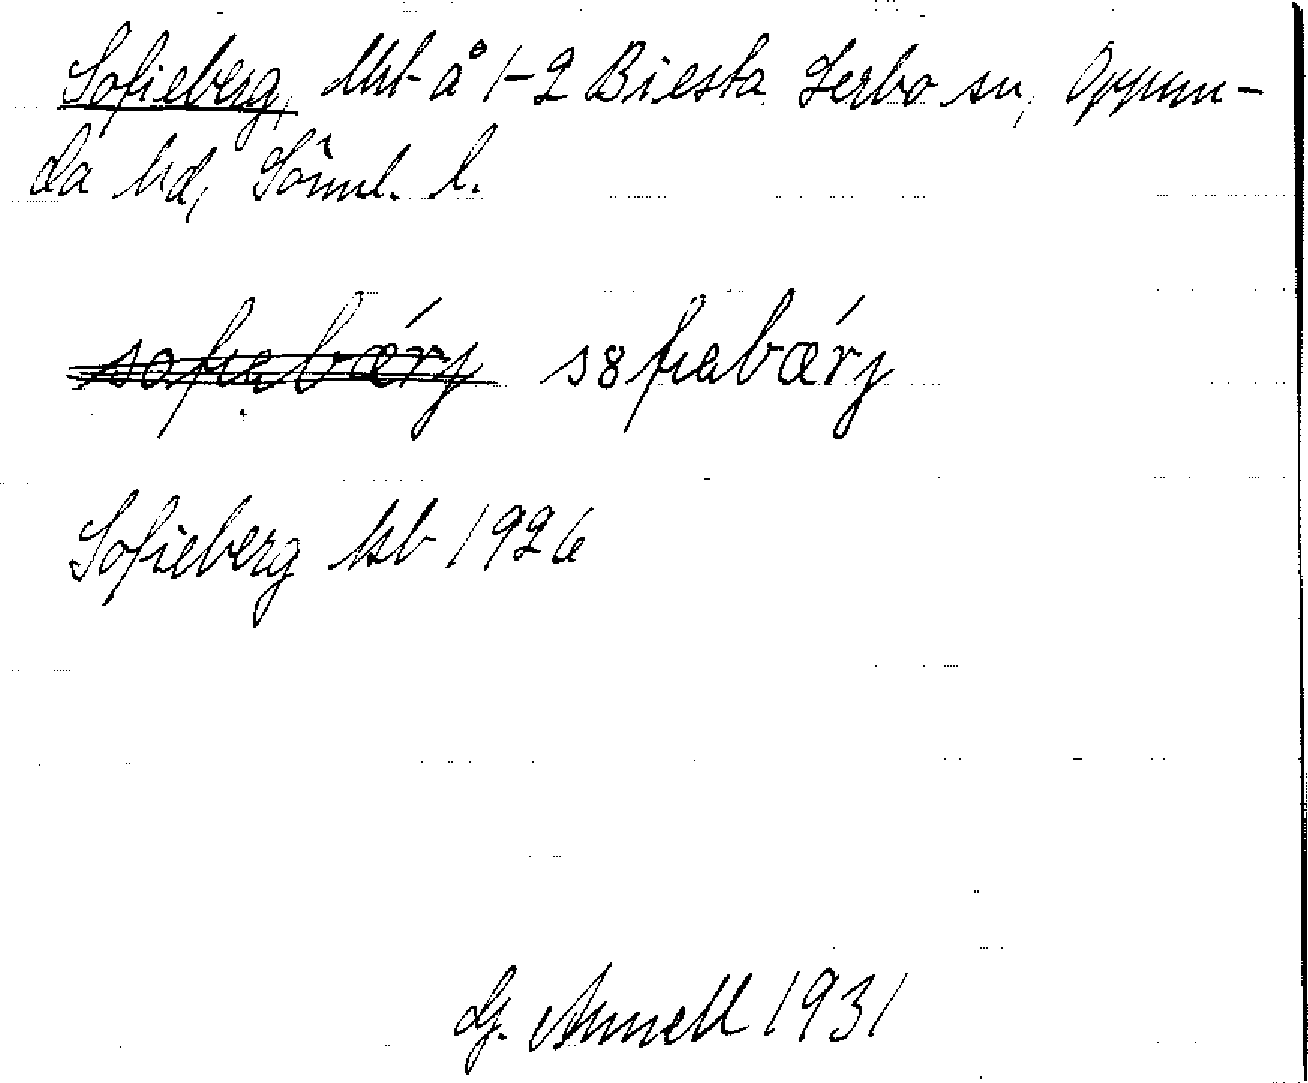 Sofieberg, lht å 1-2 Biesta Lerbo sn, Oppun-
da hd, Sörml. l.
sofiebærj s8fiabærj
Sofieberg kb 1926
G. Annell 1931